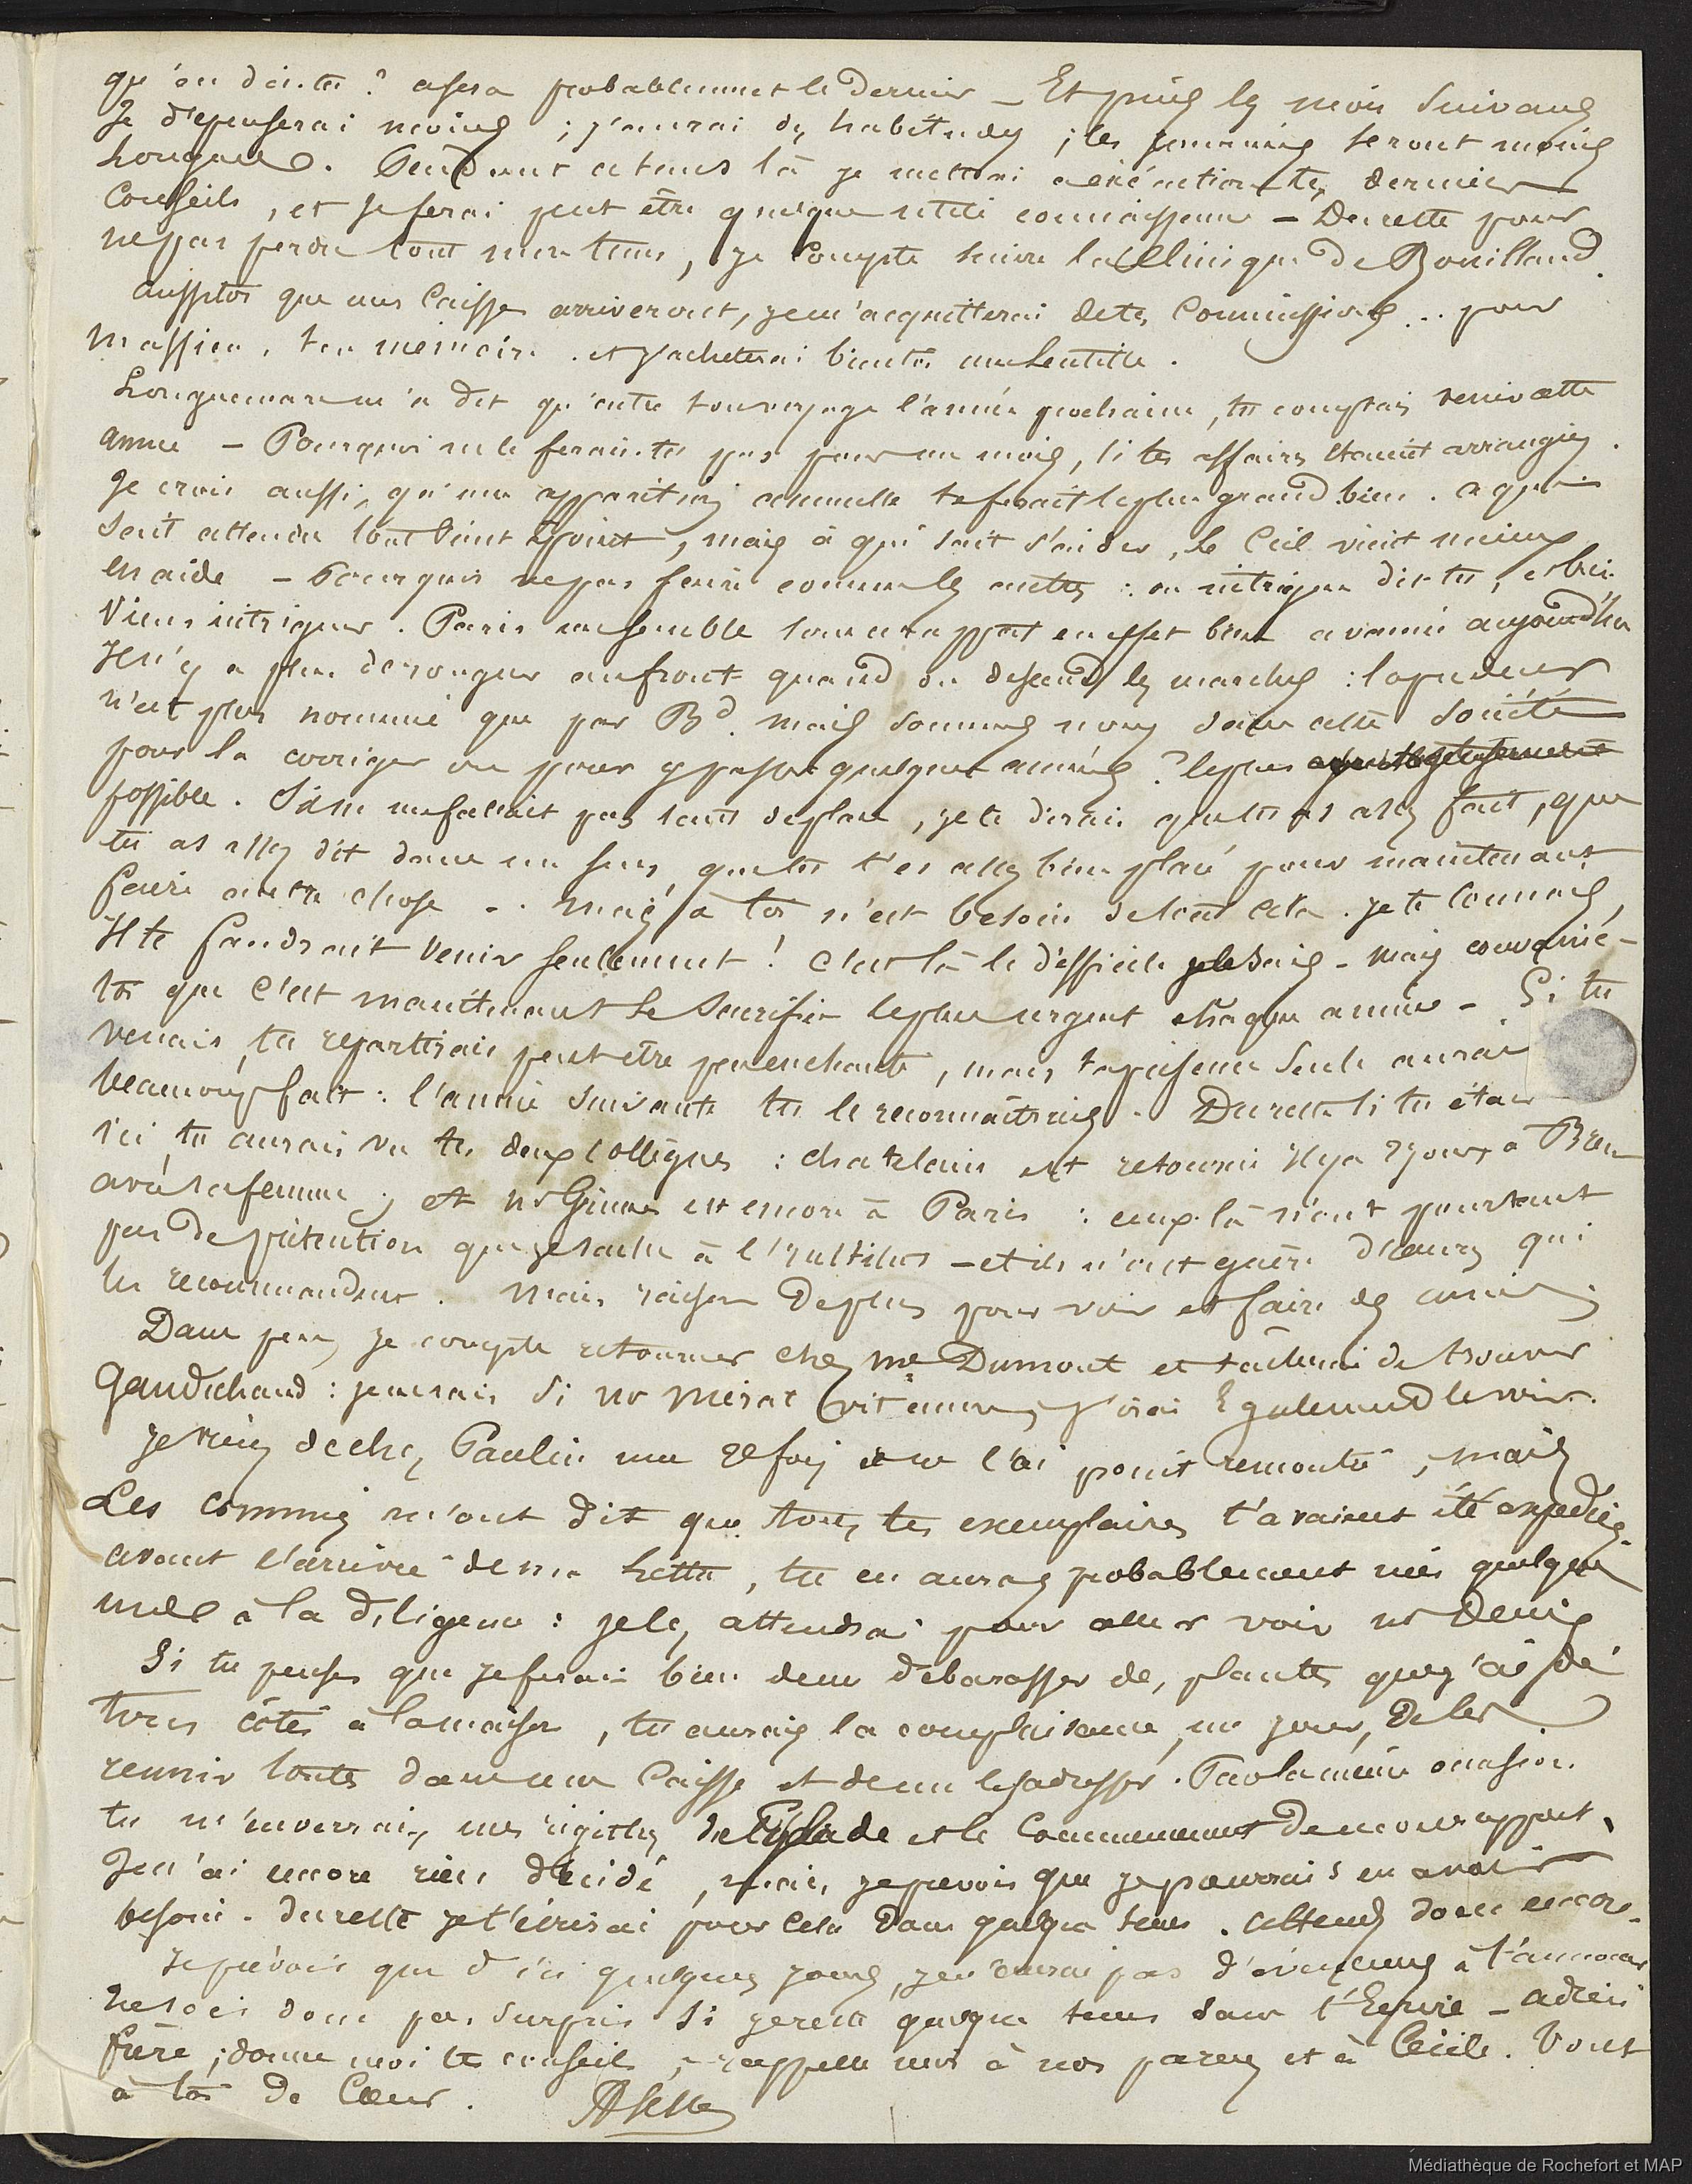 qu'en dis-tu ? ce sera probablement le dernier _ Et puis les mois suivans
Je dépenserai moins ; j'aurai des habitudes ; les journées seront moins
longues. Pendant ce tems là je mettrai à exécution tes derniers
Conseils, et je ferai peut être quelque utile connaissance - Du reste pour
ne pas perdre tout mon tems, je compte suivre la Clinique de Bouillaud.
aussitôt que mes Caisses arriveront, je m'acquitterai de tes Commissions... pour
Massieu, ton mémoire. et j'acheterai bientôt une lentille.
Longuemare m'a dit qu'outre ton voyage l'année prochaine, tu comptais venir cette
année - Pourquoi ne le ferais-tu pas pour un mois, si tes affaires étaient arrangées.
Je crois aussi, qu'une apparition annuelle te ferait le plus grand bien. à qui
sait attendre tout vient à point, mais à qui sait s'aider, le Ciel vient mieux
en aide - Pourquoi ne pas faire comme les autres : on intrigue dis-tu, eh bien
Viens intriguer. Paris me semble sous ce rapport en effet bien avancé aujourd'hui
Il n'y a plus de rougeur au front quand on descend les marches : la pudeur
n'est plus nommée que par Bd. mais sommes nous dans cette société
pour la corriger ou pour y passer quelques années ? le plus
possible. S'il ne me fallait pas sauter de place, je te dirais que tu as assez fait, que
tu as assez dit dans un sens, que tu t'es assez bien placé pour maintenant
faire autre chose - . mais à toi n'est besoin de tout cela. je te connais,
Il te faudrait venir seulement ! C'est là le difficile je le sais - mais convainc-
toi que c'est maintenant le sacrifice le plus urgent chaque année - Si tu
venais, tu repartirais peut être peu enchanté, mais ta présence seule aurait
beaucoup fait : l'année suivante tu le reconnaîtrais. Du reste si tu étais
ici, tu aurais vu tes deux collègues : chatelain est retourné il y a 2 jours à
avec sa femme ; et Mr est encore à Paris : ceux-là n'ont pourtant
pas de prétention que je sache à l' - et ils n'ont guère d'œuvres qui
les recommandent. Mais raison de plus pour voir et faire des amis.
Dans peu je compte retourner chez Me Dumont et tâcherai de trouver
Gaudichaud : je ne sais si Mr Mérat vit encore, j'irai également le voir.
Je viens de chez Paulin une 2e fois je ne l'ai point rencontré, mais
Les commis m'ont dit que tous tes exemplaires t'avaient été expédiés
avant l'arrivée de ma lettre, tu en auras probablement mis quelques
uns à la diligence : je les attendrai pour aller voir Mr Denis
Si tu penses que je ferais bien de me débarasser des plantes que j'ai de
tous côtés à la maison, tu aurais la complaisance, un jour, de les
reunir toutes dans une Caisse et de me les adresser. Par la même occasion
tu m'enverrais, mes registres de et le Commencement de mon rapport.
Je n'ai encore rien décidé, mais, je prévois que je pourrais en avoir
besoin. du reste je t'écrirai pour cela dans quelque tems. attends donc encore.
Je prévois que d'ici quelques jours, je n'aurai pas d'événemens à t'annoncer
ne sois donc pas surpris si je reste quelque tems sans t'écrire - adieu
frère ; donne moi tes conseils, rappelle moi à nos parens et à Cécile. Tout
à toi de Cœur.
A Lesson
Médiathèque de Rochefort et MAP